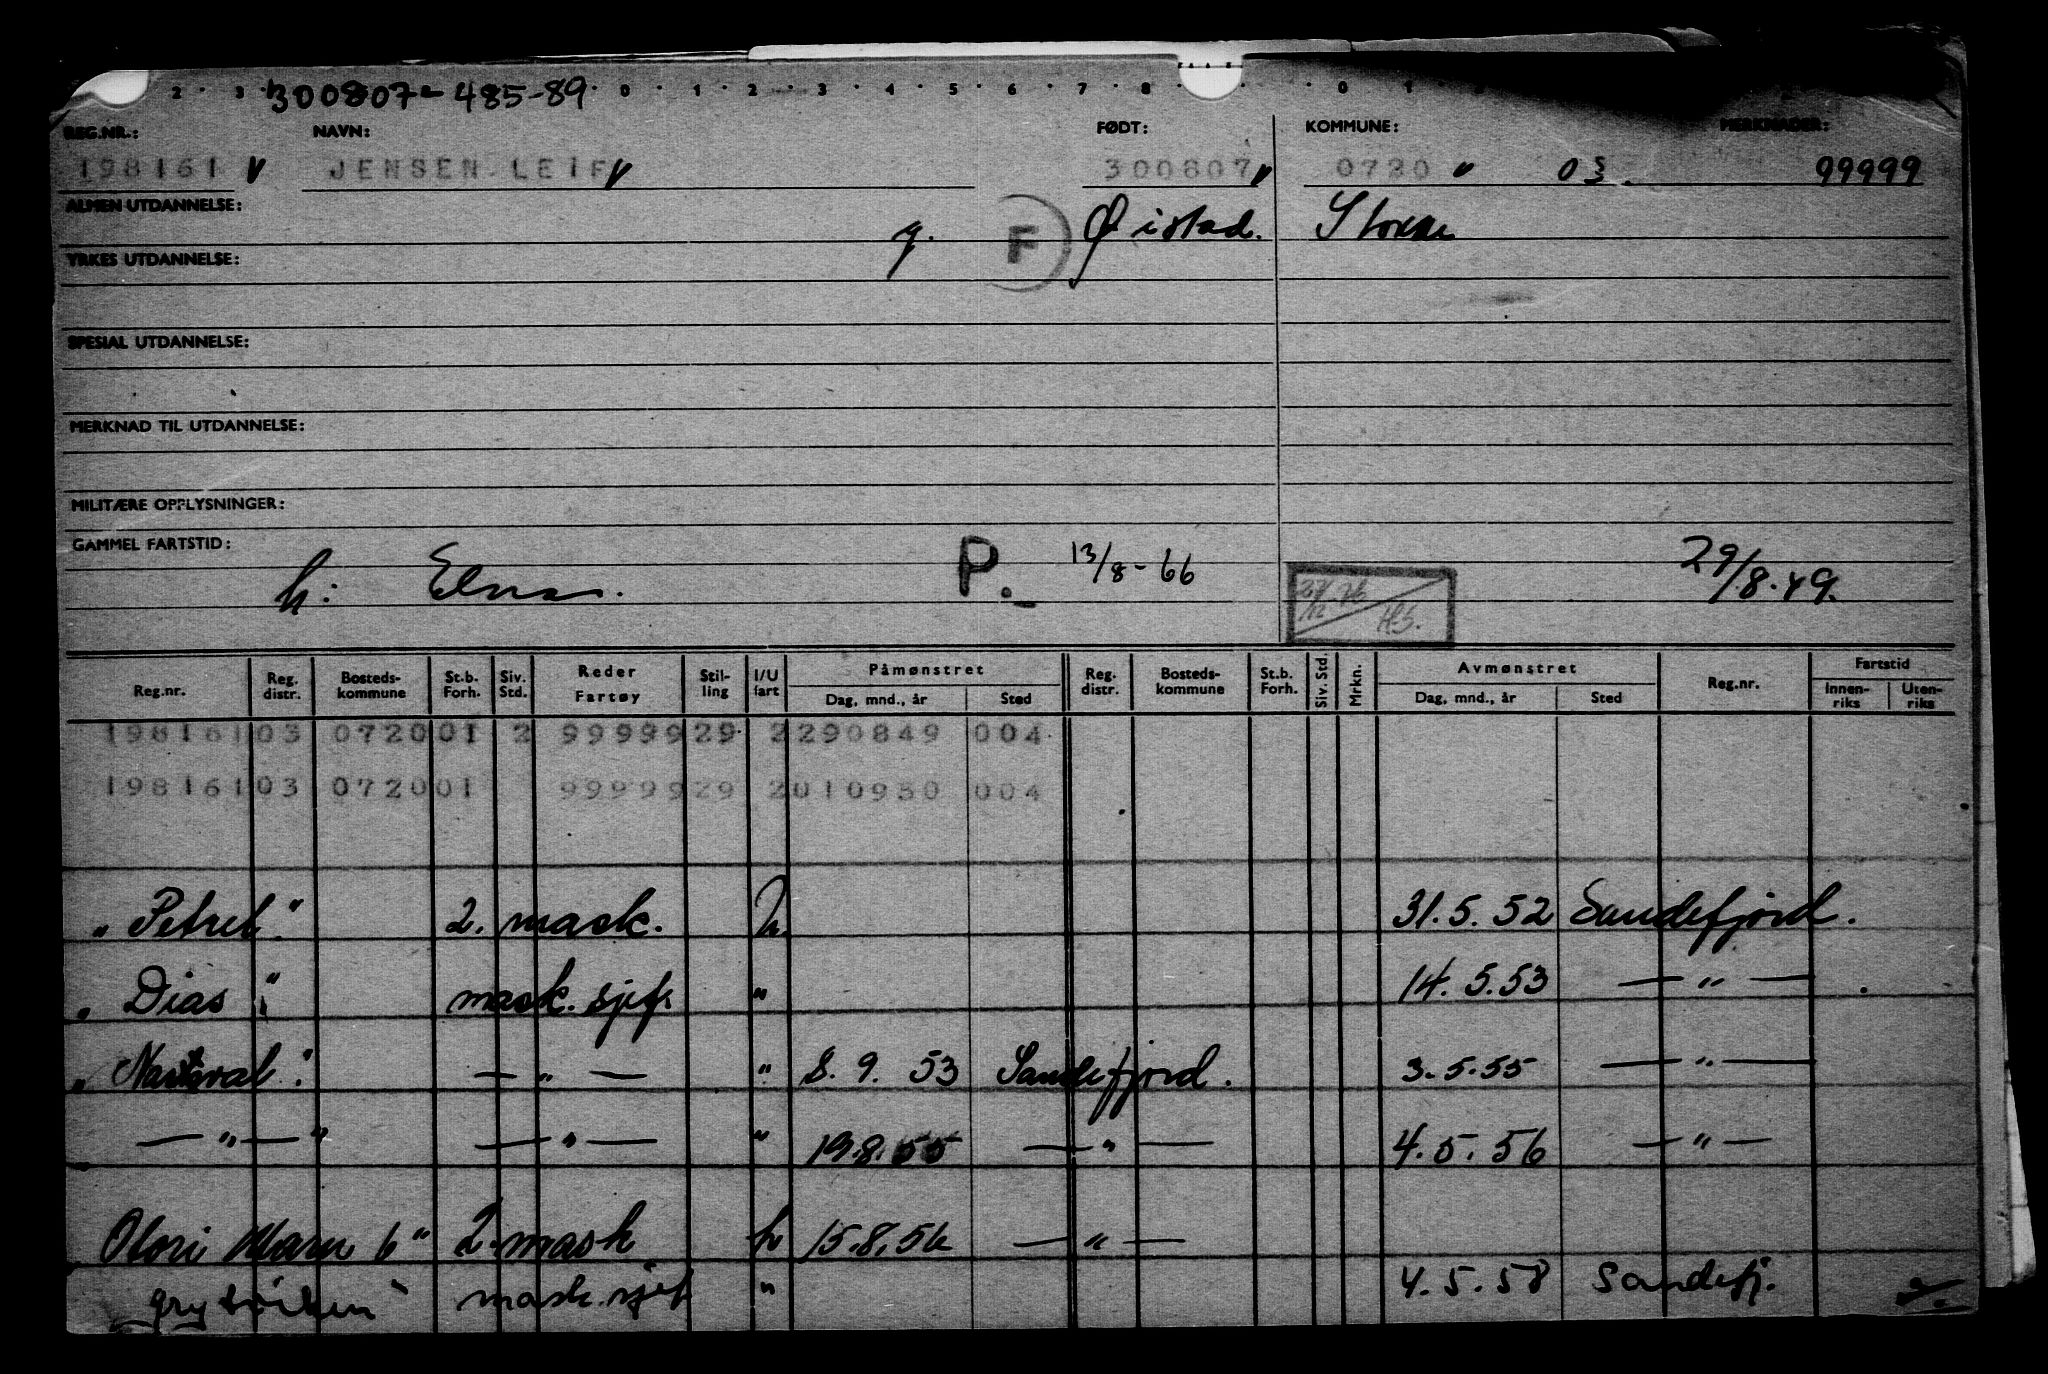 2 · 3 · 0 · 1 · 2 · 3 · 4 · 5 · 6 · 7 · 8 · 0 · 1
300807-485-89
REG.NR.: NAVN: FØDT: KOMMUNE: MERKNADER:
198161 V JENSEN LEIF V 300807 V 0720 03. 99999
ALMEN UTDANNELSE:
g. F Øistad. Stokke
YRKES UTDANNELSE:
SPESIAL UTDANNELSE:
MERKNAD TIL UTDANNELSE:
MILITÆRE OPPLYSNINGER:
GAMMEL FARTSTID:
h: Elna. P. 13/8-66 29/8.49.
H.S.
Reg.nr. Reg. distr. Bosteds-kommune St.b. Forh. Siv. Std. Reder Fartøy Stil-ling I/U fart Påmønstret Dag, mnd., år Sted Reg. distr. Bosteds-kommune St.b. Forh. Siv. Std. Mrkn. Avmønstret Dag, mnd., år Sted Reg.nr. Fartstid Innen-riks Uten-riks
198161 03 0720 01 2 99999 29 2 290849 004
198161 03 0720 01 99999 29 2 010950 004
"Petrel" 2. mask. h. 31.5.52 Sandefjord.
"Dias" mask. sjef. " 14.5.53 — " —
"Narval" — " — " 8.9.53 Sandefjord. 3.5.55 — " —
— " — " — " — " 19.8.55 — " — 4.5.56 — " —
2. mask h 15.8.56 — " —
mask. sjef " 4.5.58 Sandefj.